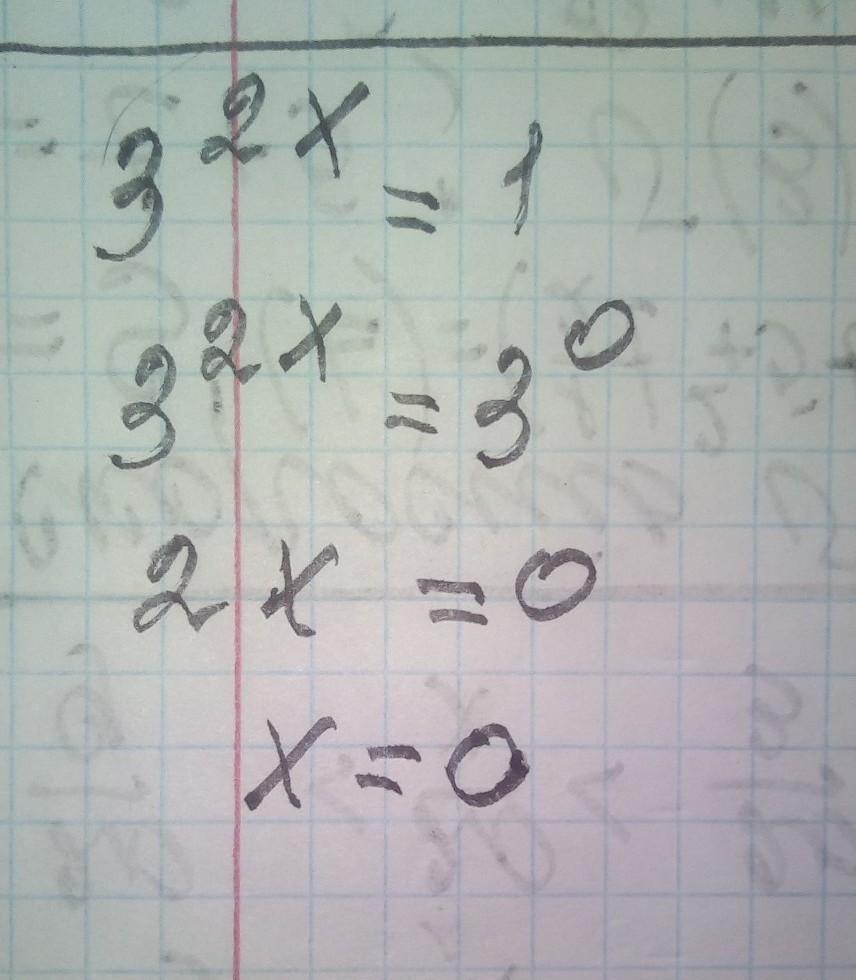 3^{2x} = 1
3^{2x} = 3^0
2x = 0
x = 0